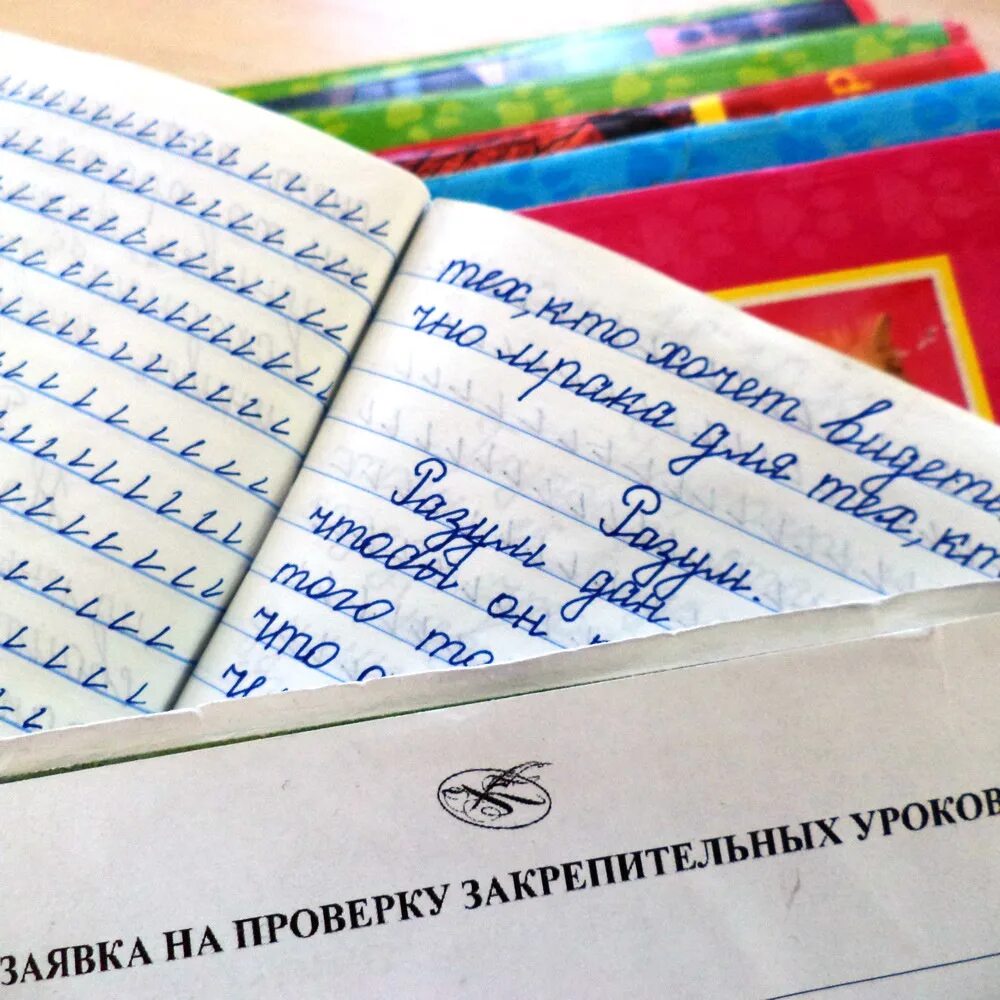 тех, кто хочет видет
чно мрака для тех, кт
Разум.
Разум дан
чтобы он
того
что
ЗАЯВКА НА ПРОВЕРКУ ЗАКРЕПИТЕЛЬНЫХ УРОКОВ